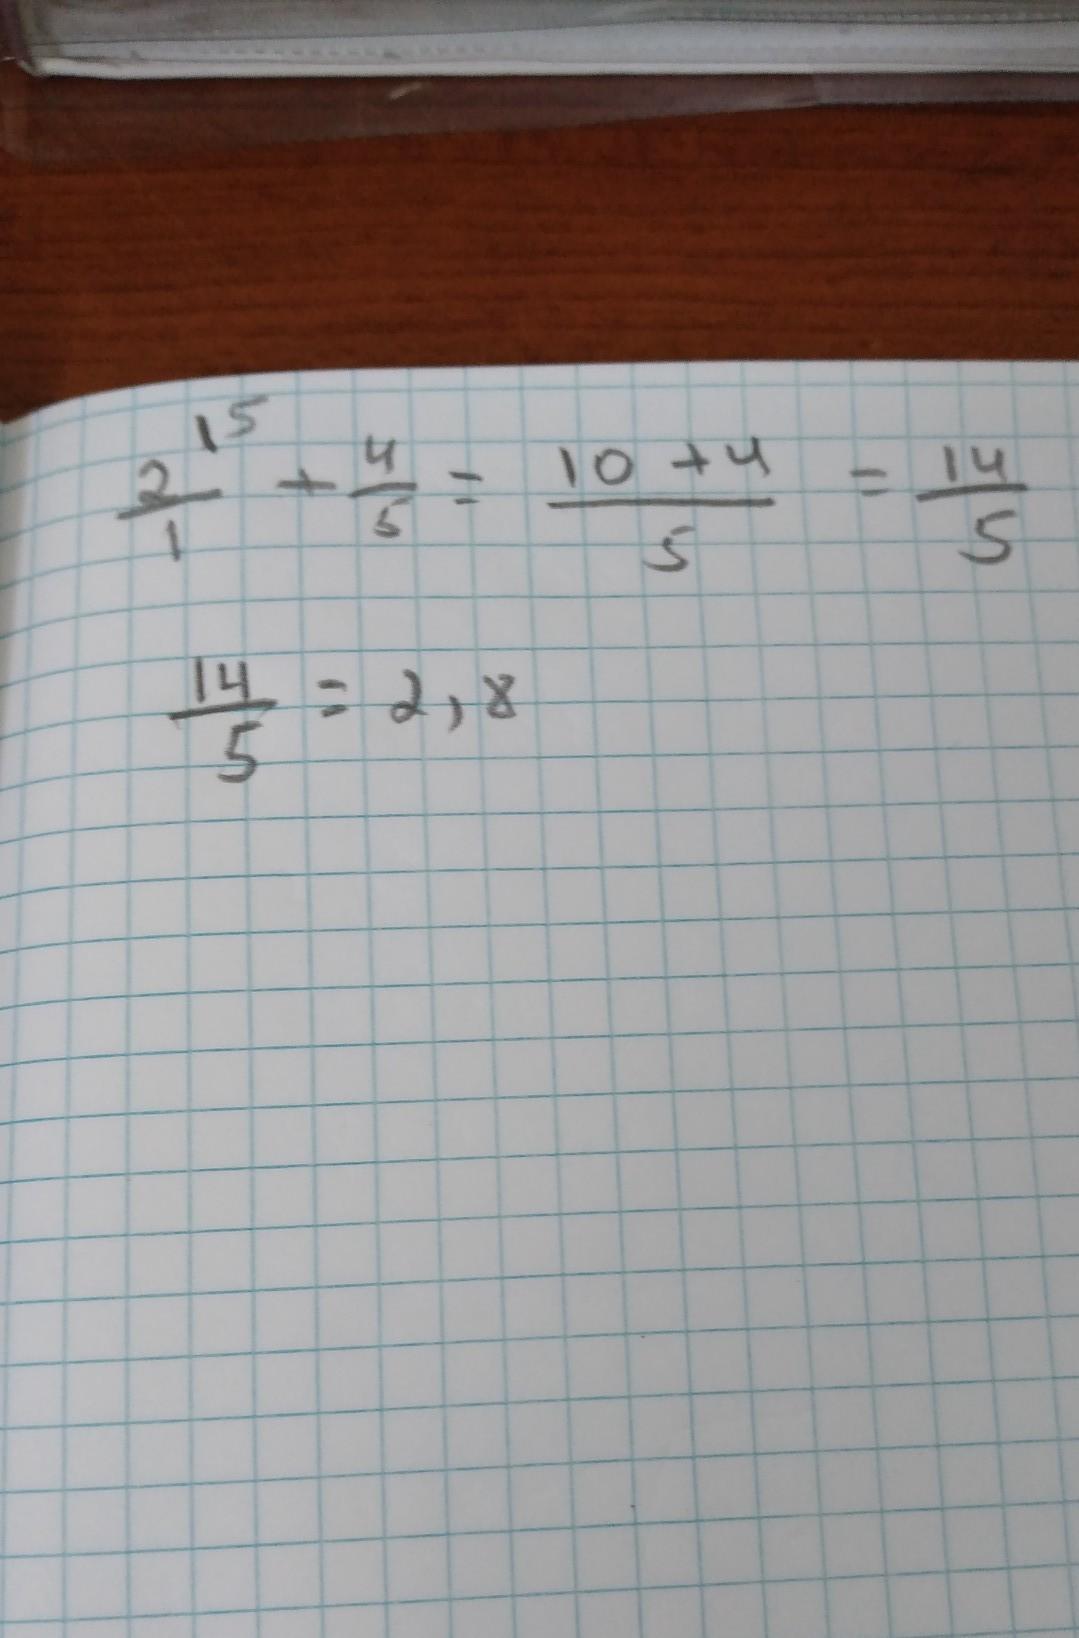 2/1 \5 + 4/5 = 10 + 4/5 = 14/5
14/5 = 2,8